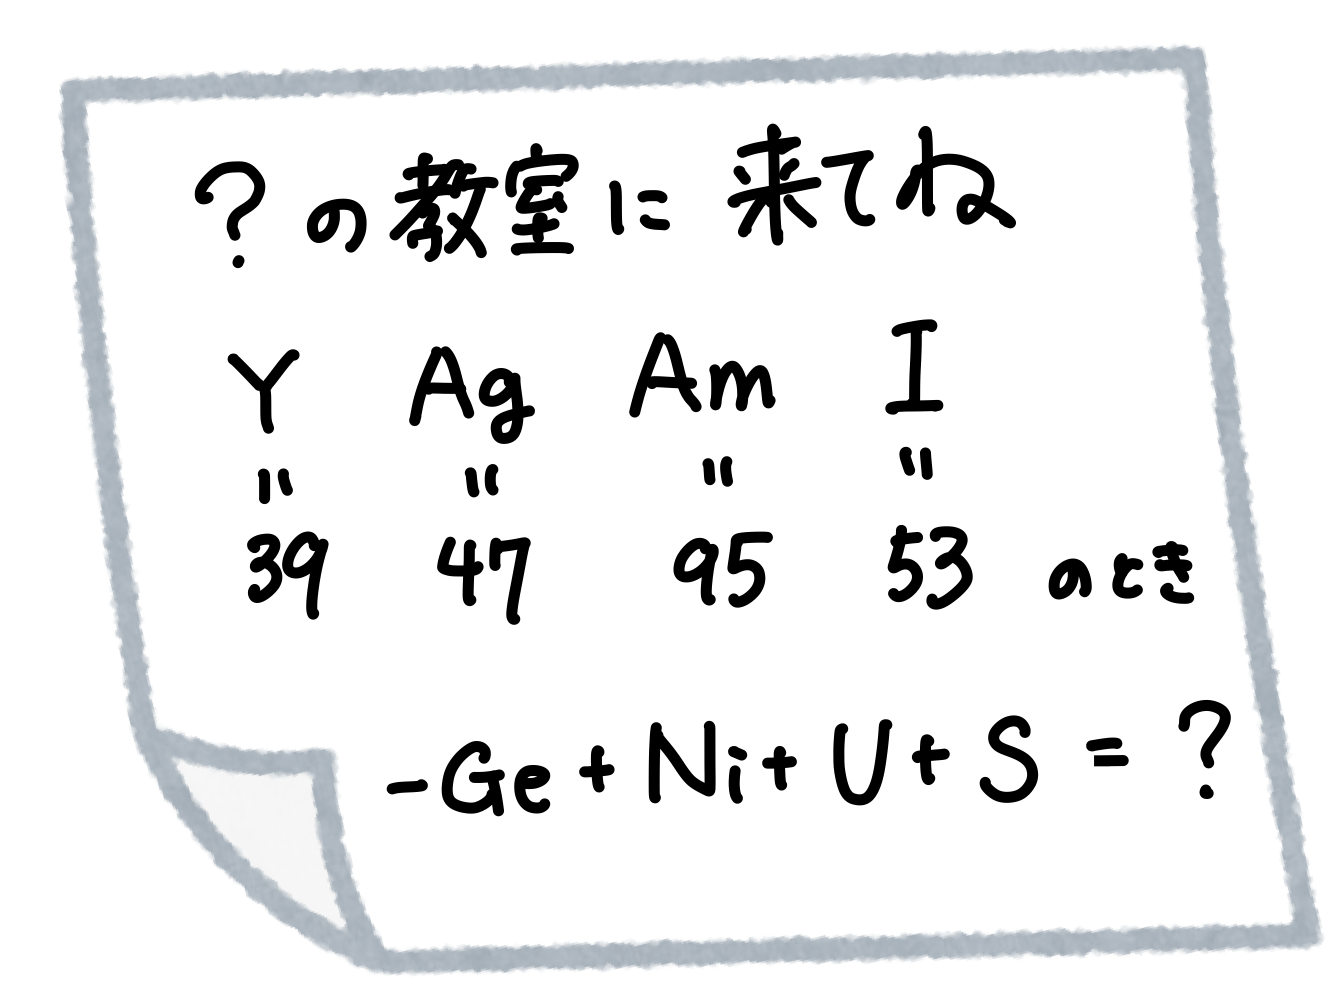 ?の教室に来てね
Y Ag Am I
" " " "
39 47 95 53 のとき
-Ge+Ni+U+S=?